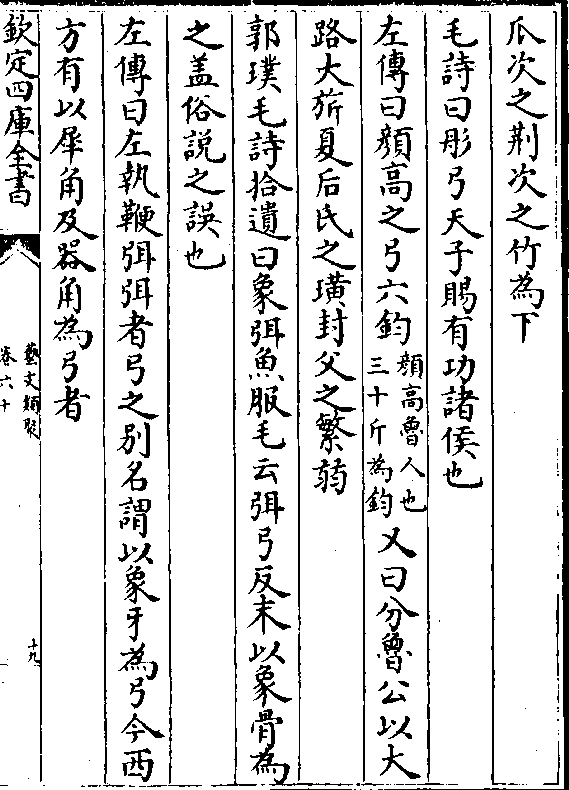 爪次之荆次之竹為下
毛詩曰彤弓天子賜有功諸侯也
左傳曰顔高之弓六鈞顔高魯人也三十斤為鈞又曰分魯公以大
路大旂夏后氏之璜封父之繁弱
郭璞毛詩拾遺曰象弭魚服毛云弭弓反末以象骨為
之盖俗說之誤也
左傳曰左執鞭弭弭者弓之别名謂以象牙為弓今西
方有以犀角及器角為弓者
欽定四庫全書
藝文類聚
卷六十
十九